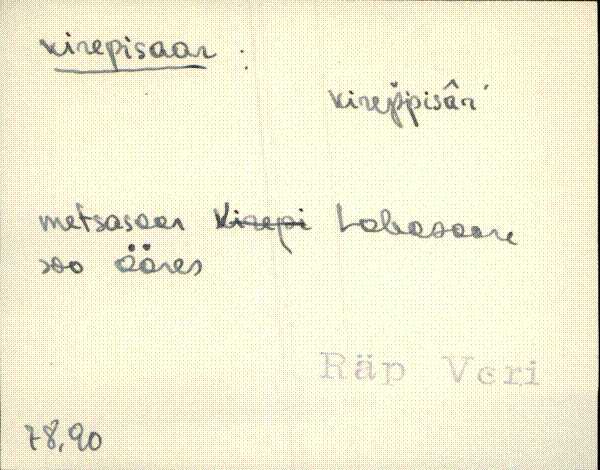 Kirepisaar :
kirep̆pisâŕ
metsasaar Kirepi Lobasaare
soo ääres
Räp Veri
78,90